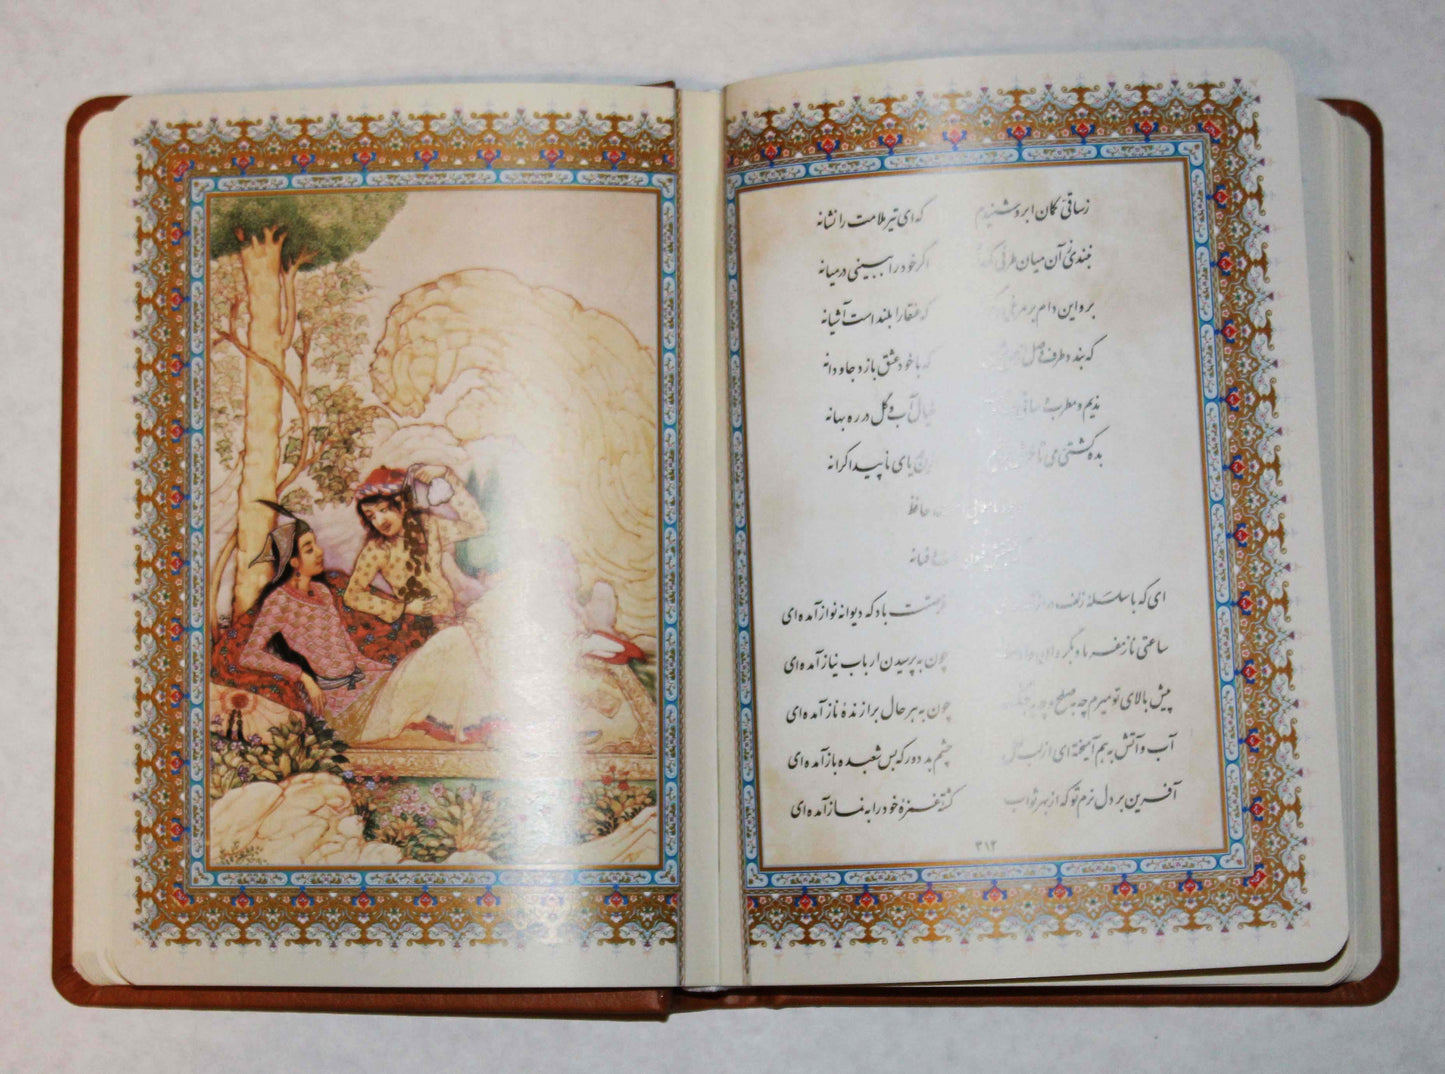 زساقی کمان ابرو شنیدم که ای تیر ملامت را نشانه
نبندی زآن میان طرفی اگر خود را ببینی در میانه
برو این دام بر مرغی که عنقا را بلند است آشیانه
که بندد طرف وصل از که با خود عشق بازد جاودانه
ندیم و مطرب و ساقی خیال آب و گل در ره بهانه
بده کشتی می تا ناپیدا کرانه
حافظ
فسانه
ای که با سلسله زلف دراز فرصتت باد که دیوانه نواز آمده ای
ساعتی ناز مفرما و بگردان چون به پرسیدن ارباب نیاز آمده ای
پیش بالای تو میرم چه به صلح و چه به چون به هر حال برازندهٔ ناز آمده ای
آب و آتش به هم آمیخته ای از لب لعل چشم بد دور که بس شعبده باز آمده ای
آفرین بر دل نرم تو که از بهر ثواب کشتهٔ غمزهٔ خود را به نماز آمده ای
۳۱۲